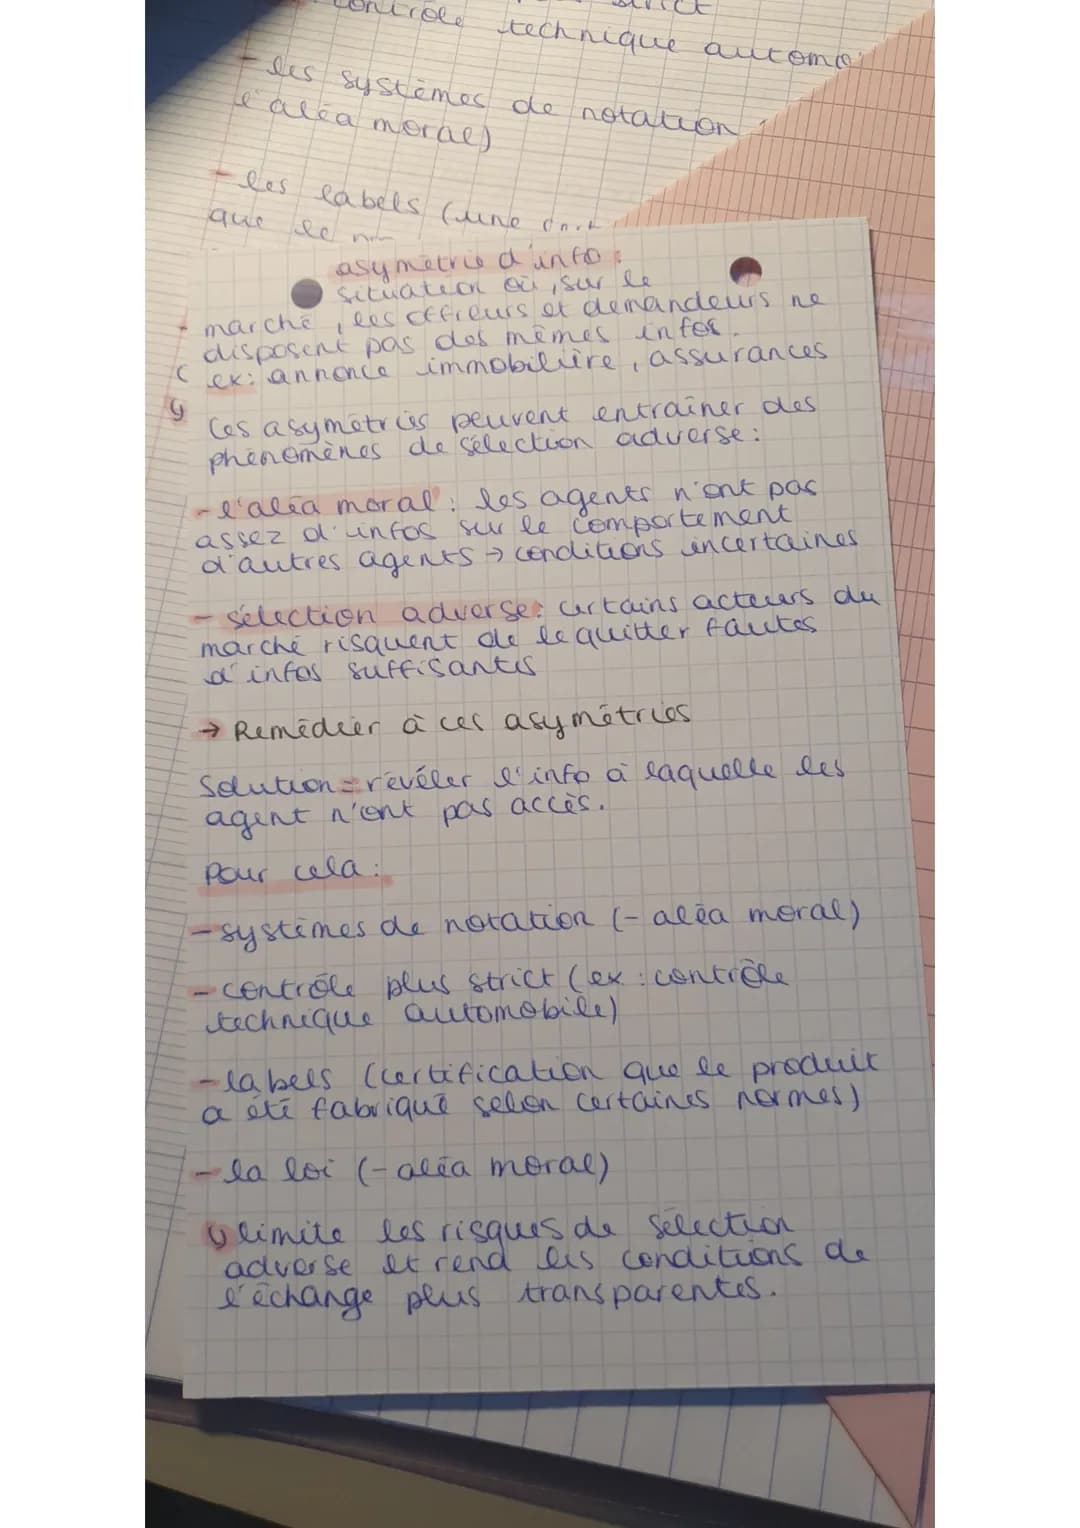 contrôle strict
technique automo
- les systèmes de notation
l'aléa moral)
- les labels (une
que le
asymétrie d'info :
situation où, sur le
marché, les offreurs et demandeurs ne
disposent pas des mêmes infos.
ex: annonce immobilière, assurances
Ces asymétries peuvent entraîner des
phénomènes de sélection adverse:
- l'aléa moral : les agents n'ont pas
assez d'infos sur le comportement
d'autres agents → conditions incertaines
- sélection adverse: certains acteurs du
marché risquent de le quitter fautes
d'infos suffisantes
→ Remédier à ces asymétries
Solution = révéler l'info à laquelle les
agent n'ont pas accès.
Pour cela :
- systèmes de notation (- aléa moral)
- contrôle plus strict (ex : contrôle
technique automobile)
- labels (certification que le produit
a été fabriqué selon certaines normes)
- la loi (- aléa moral)
↳ limite les risques de sélection
adverse et rend les conditions de
l'échange plus transparentes.